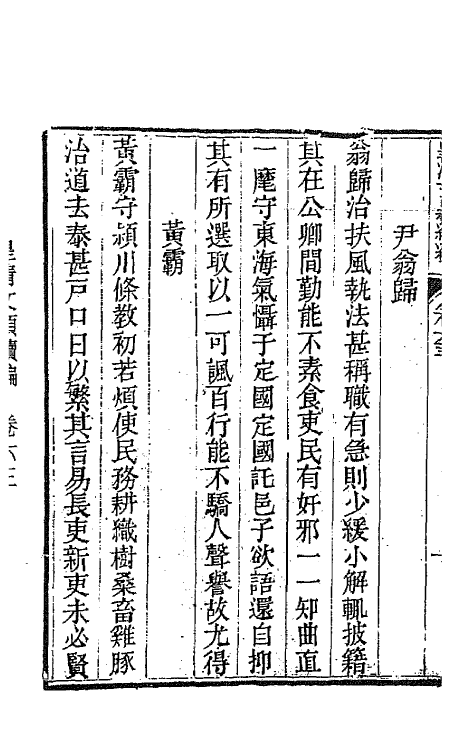 尹翁歸
翁歸治扶風執法甚稱職有急則少緩小解輒披籍
其在公卿間勤能不素食吏民有奸邪一一知曲直
一麾守東海氣懾于定國定國託邑子欲語還自抑
其有所選取以一可諷百行能不驕人聲譽故尤得
黃霸
黃霸守潁川條教初若煩使民務耕織樹桑畜雞豚
治道去泰甚戸口日以繁其言易長吏新吏未必賢
皇清文穎續編 卷六三